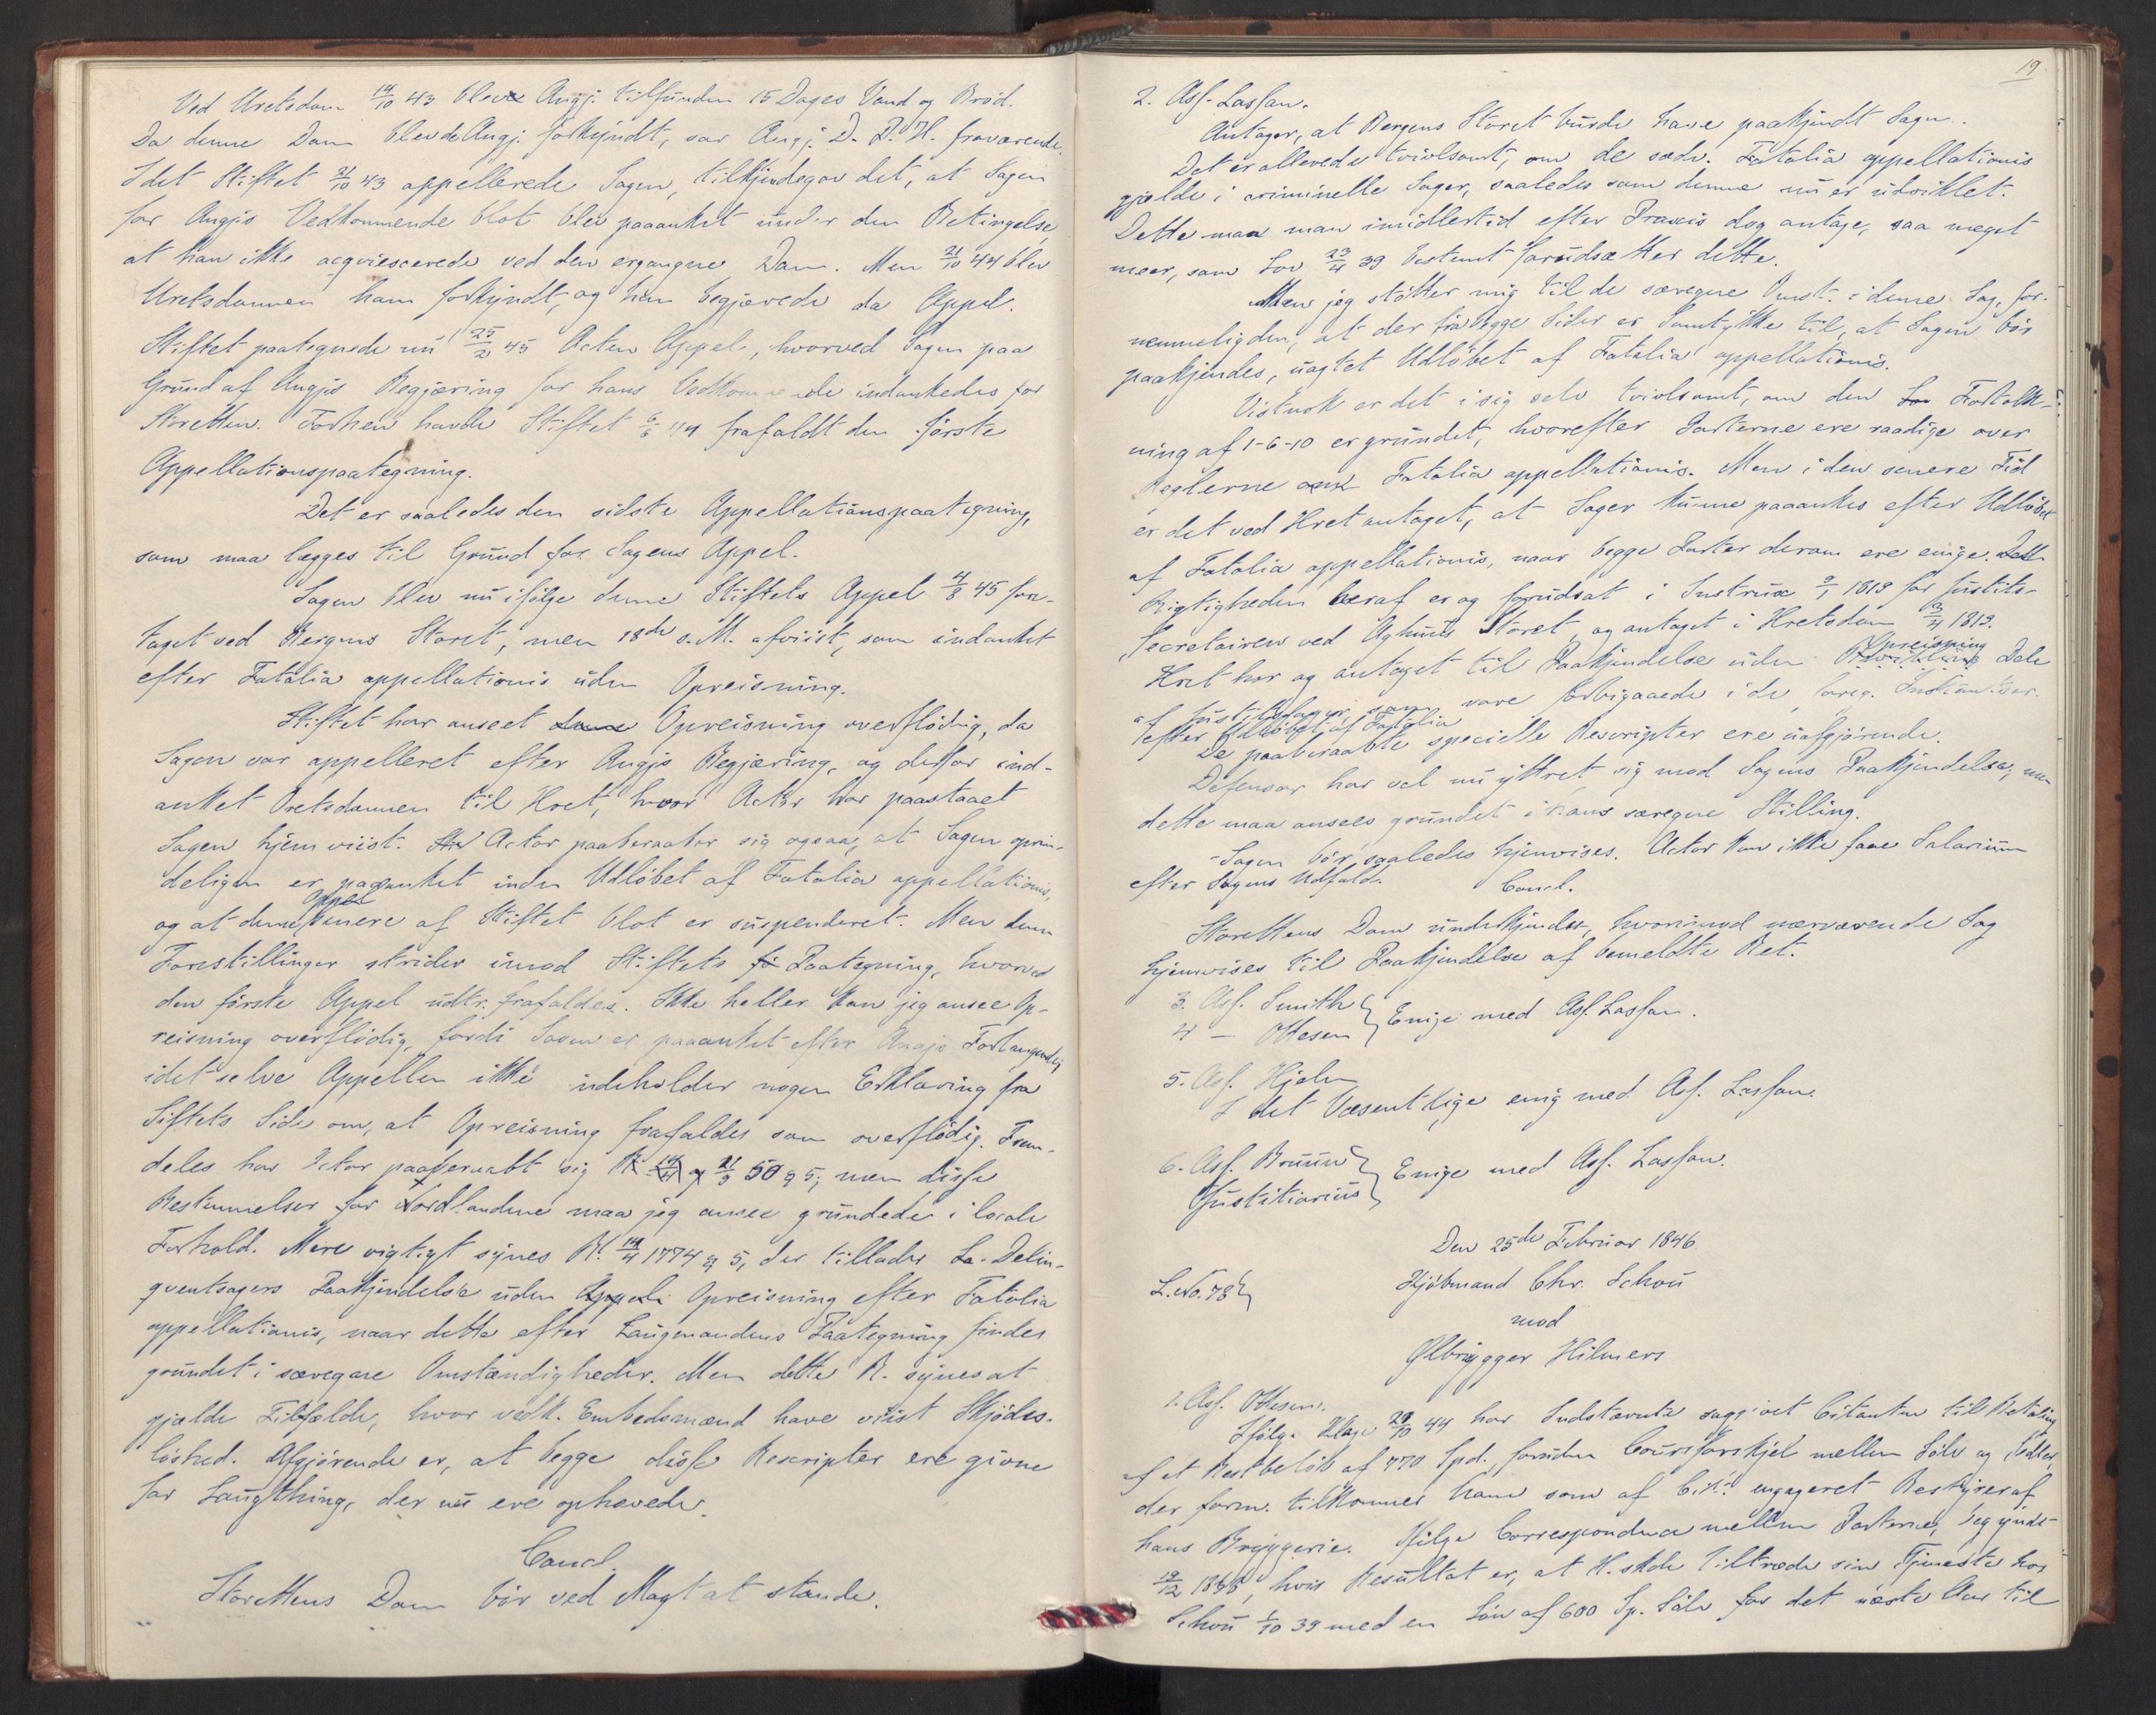 Ved Uretsdom 19/10 43 blev Angj. tilfunden 15 Dages Vand og Brød.
Da denne Dom blev de Angj. forkyndt, var Angj. D. P. H. fraværende.
Idet Stiftet 21/10 43 appellerede Sagen, tilkjendegav det, at Sagen
for Angjs Vedkommende blot blev paaanket under den Betingelse,
at han ikke acqviescerede ved den ergangne Dom. Men 21/10 44 blev
Uretsdommen ham forkyndt, og han begjærede da Appel.
Stiftet paategnede nu 25/2 45 Acten Appel, hvorved Sagen paa
Grund af Angjs Begjæring for hans Vedkommende indankedes for
Storetten. Forhen havde Stiftet 6/6 44 frafaldt den første
Appellationspaategning.
Det er saaledes den sidste Appellationspaategning,
som maa lægges til Grund for Sagens Appel.
Sagen blev nu ifølge denne Stiftets Appel 4/8 45 fore-
taget ved Bergens Storet, men 18de s. M. afviist, som indanket
efter Fatalia appellationis uden Opreisning.
Stiftet har anseet denne Opreisning overflødig, da
Sagen var appelleret efter Angjs Begjæring, og derfor ind-
anket Oretsdommen til Hret, hvor Actor har paastaaet
Sagen hjemviist. Actor paaberaaber sig ogsaa, at Sagen oprin-
deligen er paaanket inden Udløbet af Fatalia appellationis,
og at denne Appel senere af Stiftet blot er suspenderet. Men denne
Forestillinger strider imod Stiftets Paategning, hvorved
den første Appel udtr. frafaldes. Ikke heller kan jeg ansee Op-
reisning overflødig, fordi Sagen er paaanket efter Angjs Forlangende,
idet selve Appellen ikke indeholder nogen Erklæring fra
Stiftets Side om, at Opreisning frafaldes som overflødig. Frem-
deles har Actor paaberaabt sig R. 21/9 50 § 5; men disse
Bestemmelser for Nordlandene maa jeg ansee grundede i locale
Forhold. Mere vigtigt synes R. 14/4 1774 § 5, der tillader Delin-
qventsagers Paakjendelse uden Opreisning efter Fatalia
appellationis, naar dette efter Laugmandens Paategning findes
grundet i særegne Omstændigheder. Men dette R. synes at
gjælde Tilfælde, hvor vedk. Embedsmænd have viist Skjødes-
løshed. Afgjørende er, at begge disse Rescripter ere givne
for Laugthing, der nu ere ophævede.
Concl.
Storettens Dom bør ved Magt at stande.
19.
2. Ass. Lasson.
Antager, at Bergens Storet burde have paakjendt Sagen.
Det er allerede tvivlsomt, om de sædv. Fatalia appellationis
gjælde i criminelle Sager, saaledes som denne nu er udviklet.
Dette maa man imidlertid efter Praxis dog antage, saa meget
meer, som Lov 23/4 39 bestemt forudsætter dette.
Men jeg støtter mig til de særegne Omst. i denne Sag, for-
nemmelig den, at der fra begge Sider er Samtykke til, at Sagen bør
paakjendes, uagtet Udløbet af Fatalia appellationis.
Vistnok er det i sig selv tvivlsomt, om den Fortolk-
ning af 1-6-10 er grundet, hvorefter Parterne ere raadige over
Reglerne om Fatalia appellationis. Men i den senere Tid
er det ved Hret antaget, at Sager kunne paaankes efter Udløbet
af Fatalia appellationis, naar begge Parter derom ere enige.
Rigtigheden heraf er og forudsat i Instrux 9/1 1813 for Justits-
Secretairen ved Aghuus Storet, og antaget i Hretsdom 13/4 1819.
Hret har og antaget til Paakjendelse uden Opreisning Dele
af Justitssager, som vare forbigaaede i de foreg. Instantser
efter Udløbet af Fatalia
De paaberaabte specielle Rescripter ere uafgjørende.
Defensor har vel nu yttret sig mod Sagens Paakjendelse, men
dette maa ansees grundet i hans særegne Stilling.
Sagen bør saaledes hjemvises. Actor kan ikke faae Salarium
efter Sagens Udfald.
Concl.
Storettens Dom underkjendes, hvorimod nærværende Sag
hjemvises til Paakjendelse af bemeldte Ret.
3. Ass. Smith
4 — Ottesen } Enige med Ass. Lasson.
5. Ass. Hjelm
I det Væsentlige enig med Ass. Lasson.
6. Ass. Bruun
Justitiarius } Enige med Ass. Lasson.
Den 25de Februar 1846.
L. No. 78}
Kjøbmand Chr. Schou
mod
Ølbrygger Hilmers
1. Ass. Ottesen.
Ifølge Klage 29/10 44 har Indstævnte saggivet Citanten til Betaling
af et Restbeløb af 770 Spd. foruden Coursforskjel mellem Sølv og Sedler,
der form. tilkommer ham som af Cit. engageret Bestyrer af
hans Bryggerie. Ifølge Correspondence mellem Parterne, begyndt
19/12 1838, hvis Resultat er, at H. skde tiltræde sin Tjeneste hos
Schou 1/10 39 med en Løn af 600 Sp. Sølv for det næste Aar til